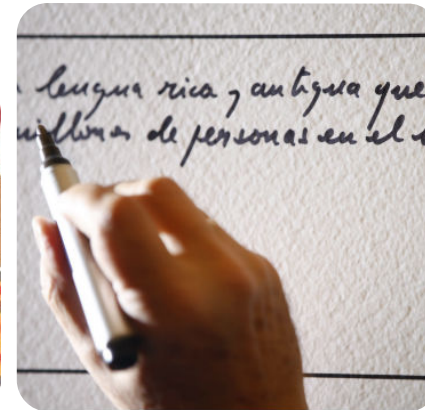 lengua rica y antigua que
millones de personas en el